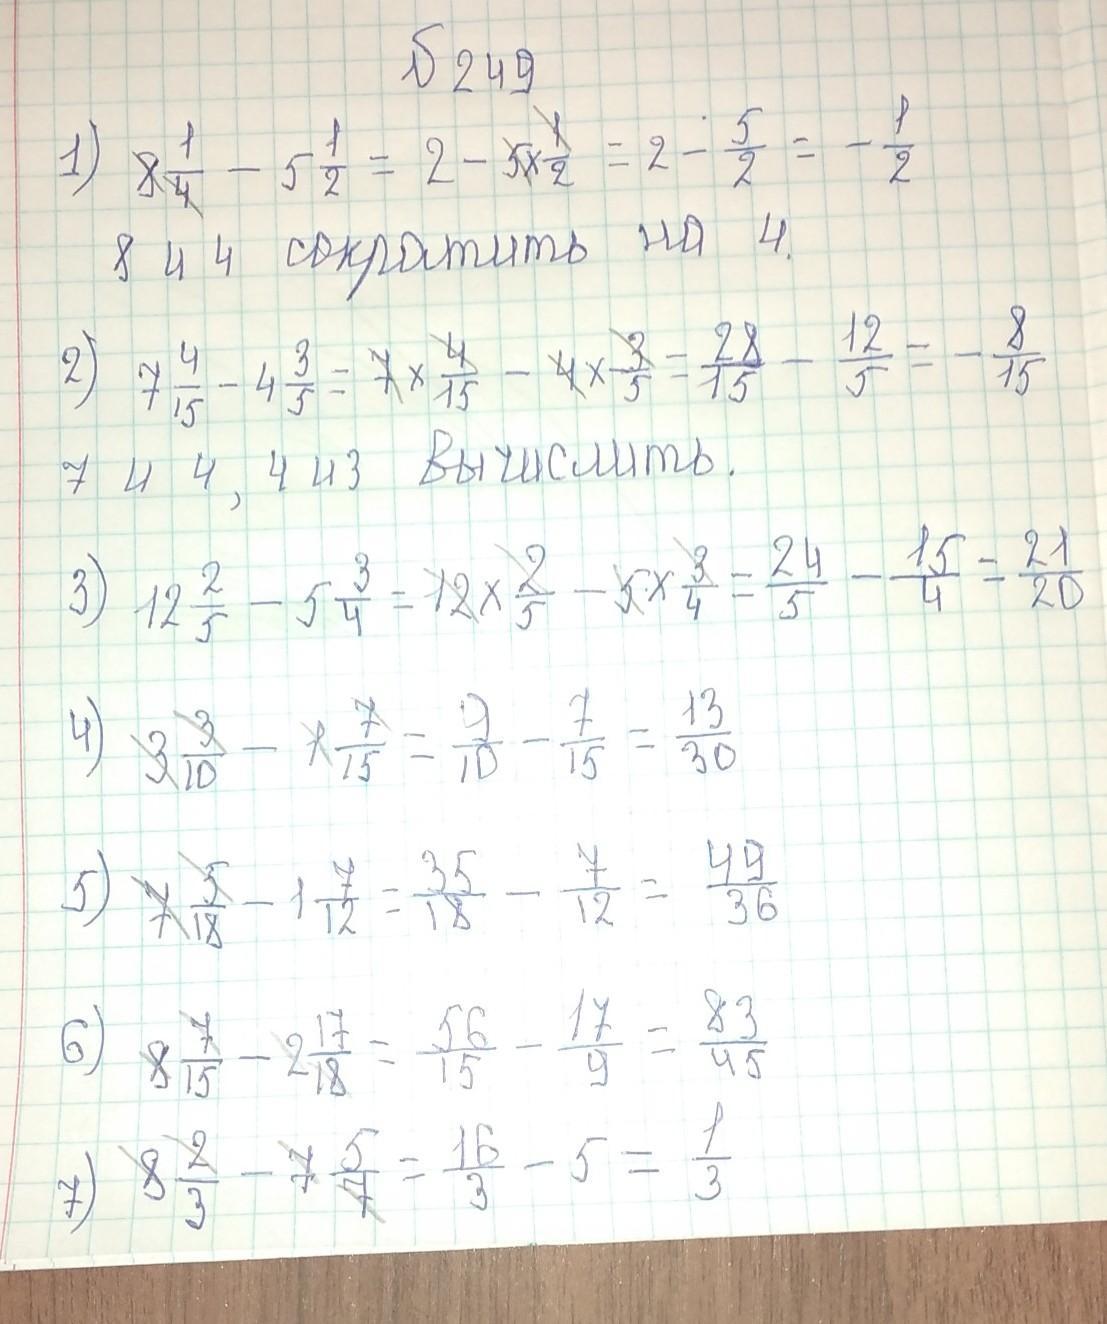 № 249
1) 8 1/4 − 5 1/2 = 2 − 5 × 1/2 = 2 − 5/2 = − 1/2
8 и 4 сократить на 4.
2) 7 4/15 − 4 3/5 = 7 × 4/15 − 4 × 3/5 = 28/15 − 12/5 = − 8/15
7 и 4, 4 и 3 вычислить.
3) 12 2/5 − 5 3/4 = 12 × 2/5 − 5 × 3/4 = 24/5 − 15/4 = 21/20
4) 3 3/10 − 1 7/15 = 9/10 − 7/15 = 13/30
5) 7 5/18 − 1 7/12 = 35/18 − 7/12 = 49/36
6) 8 7/15 − 2 17/18 = 56/15 − 17/9 = 83/45
7) 8 2/3 − 7 5/7 = 16/3 − 5 = 1/3